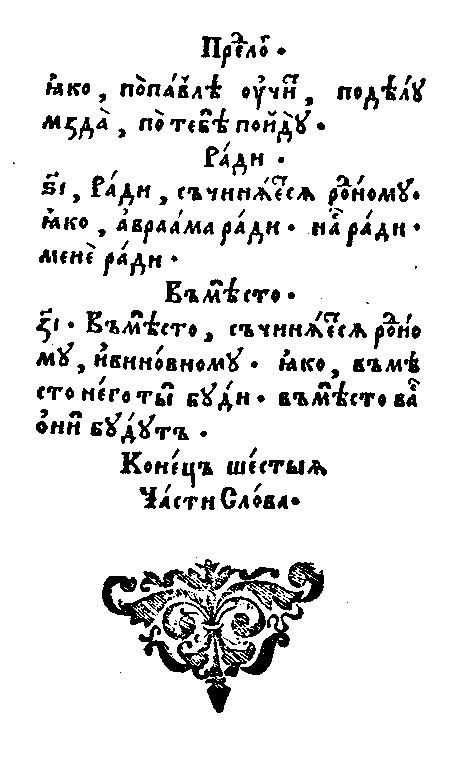 Пре́ⷣлоⷢ҇ .
ꙗ҆́ко , по̀па́ѵлѣ ᲂу҆чиⷮ , подѣ́лꙋ
мꙁда̀ , по̀тебⷤѣ пойдꙋ̀ .
Ра́ди .
в҃і , Ра́ди , съчинѧ́еⷮсѧ роⷣ́номꙋ .
ꙗ҆́ко , а҆враа́ма ра́ди . наⷭ҇ ра́ди .
менѐ ра́ди .
Въмⷭ҇ѣсто .
г҃і . Въмⷭ҇ѣсто , съчинѧ́еⷮсѧ роⷣ́но
мꙋ , и҆вино́вномꙋ . ꙗ҆́ко , въмѣ
сто не́го ты̀ бꙋ́ди . въмⷭ҇ѣсто ваⷭ҇
ѻ҆нѝ бꙋ́дꙋтъ .
Коне́цъ шесты́ѧ
Ча́сти Сло́ва .